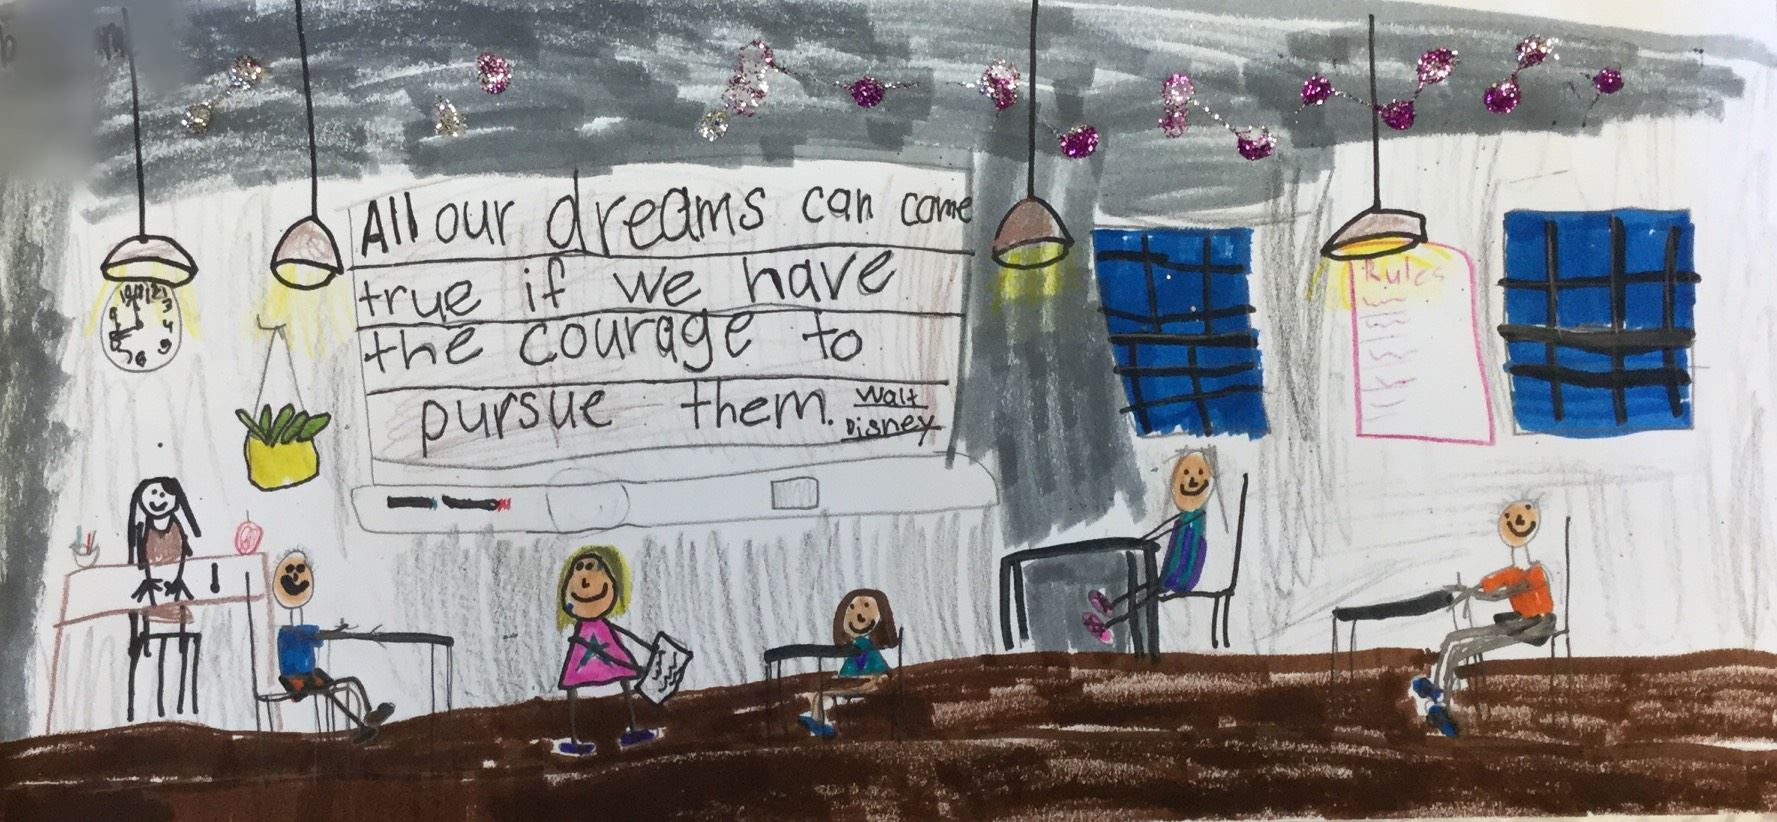 All our dreams can come
true if we have
the courage to
pursue them. Walt
Disney
Rules